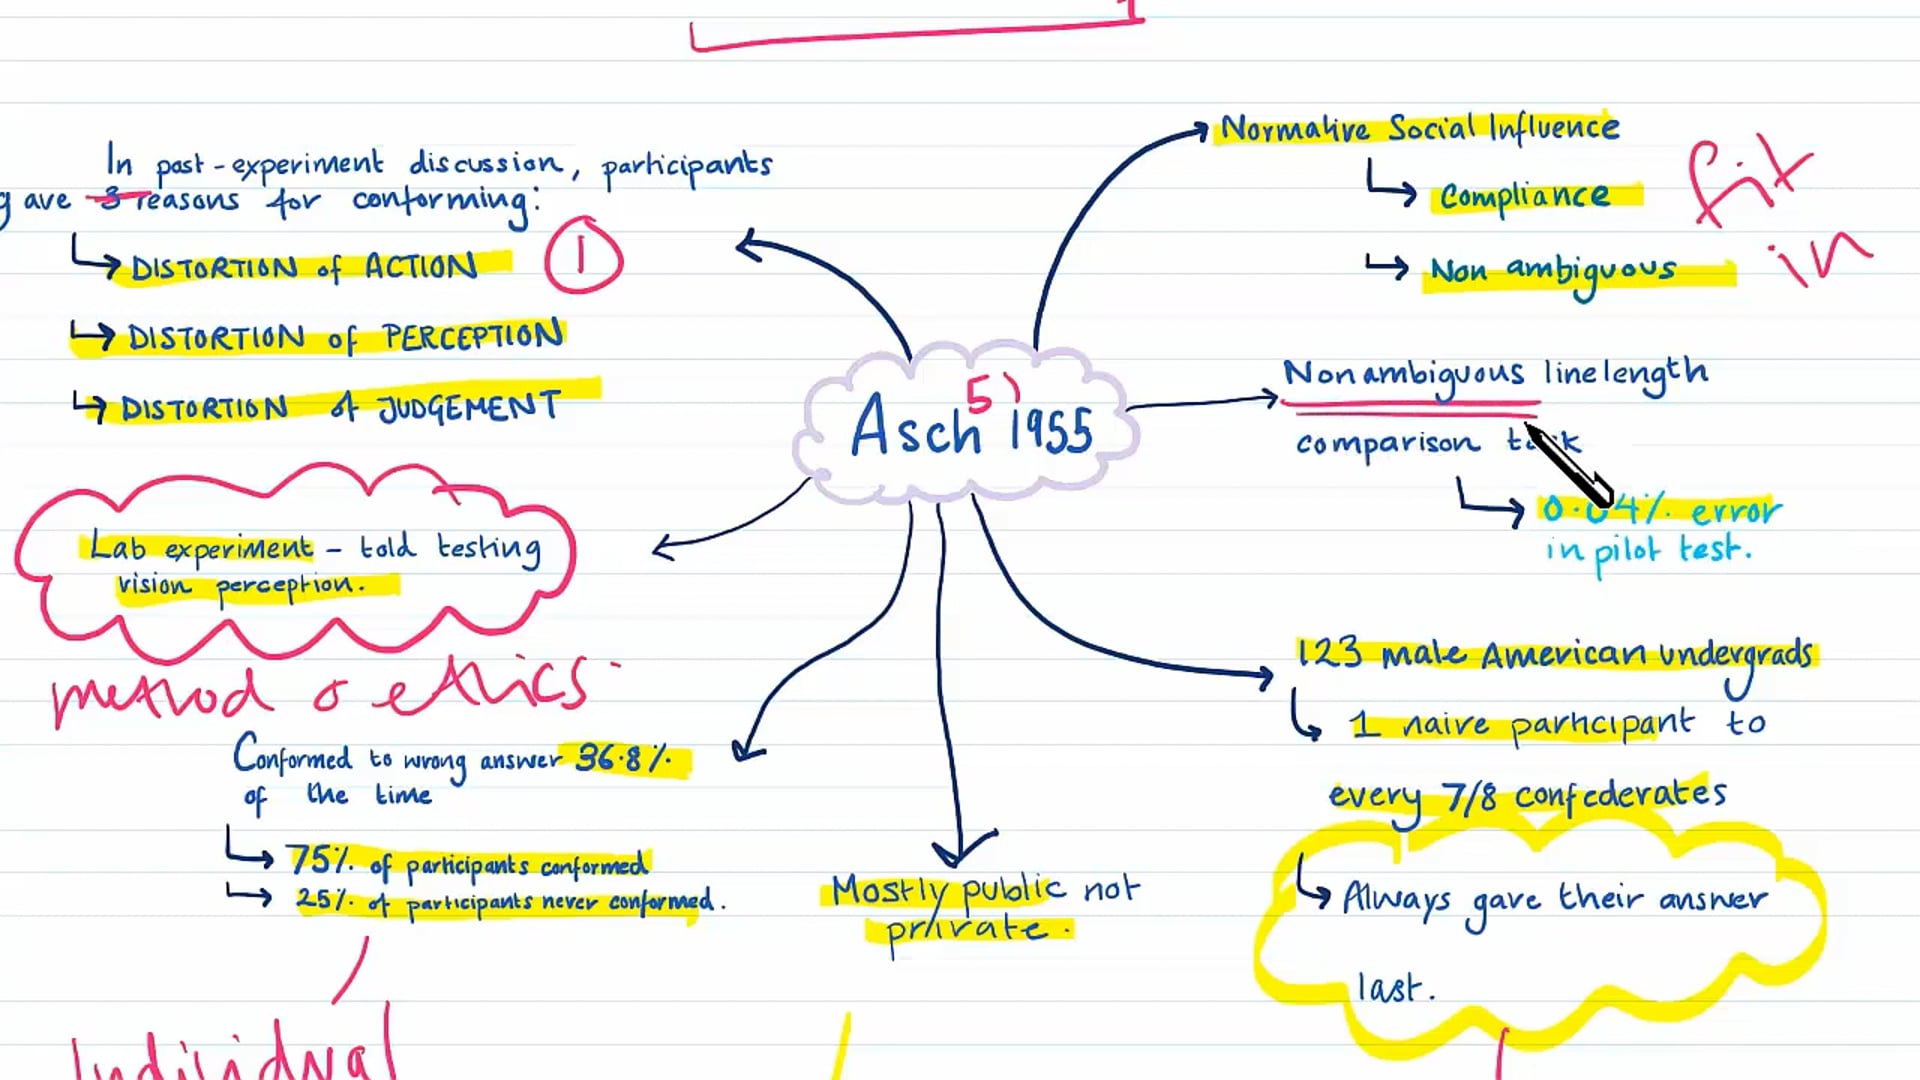 In post-experiment discussion, participants
gave 3 reasons for conforming:
DISTORTION of ACTION
1
DISTORTION of PERCEPTION
DISTORTION of JUDGEMENT
Normative Social Influence
Compliance
Non ambiguous
fit
in
5)
Asch 1955
Non ambiguous line length
comparison task
0.04% error
in pilot test.
Lab experiment - told testing
vision perception.
method & ethics
123 male American undergrads
1 naive participant to
every 7/8 confederates
Always gave their answer
last.
Conformed to wrong answer 36.8%
of the time
75% of participants conformed
25% of participants never conformed.
Mostly public not
private.
Individual